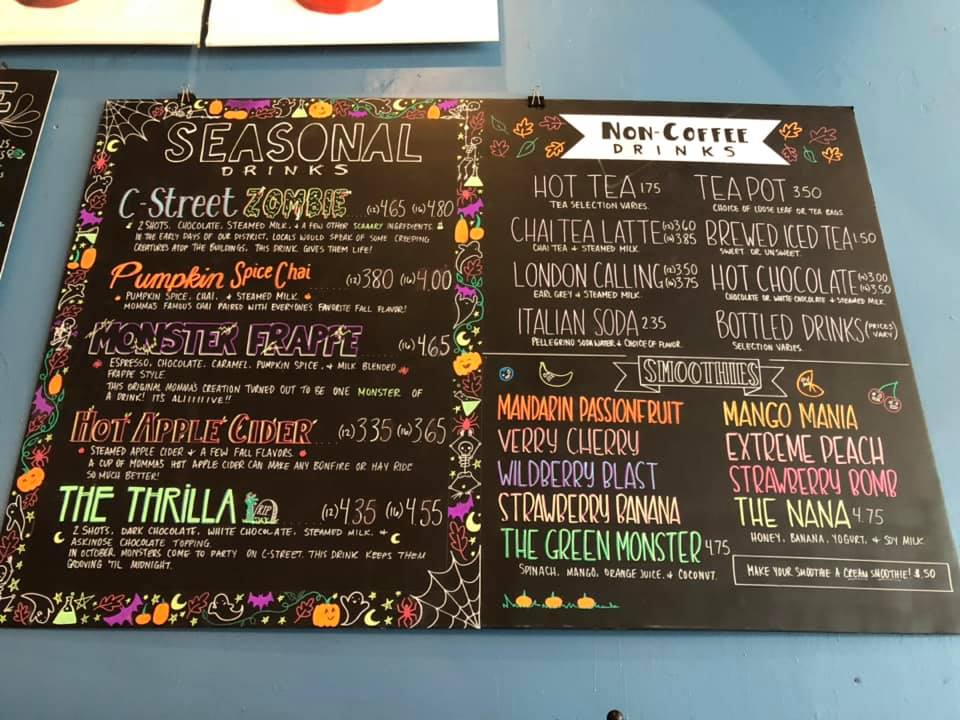 E
SEASONAL
DRINKS
C-Street ZOMBIE (12)4.65 (16)4.80
2 SHOTS, CHOCOLATE, STEAMED MILK, & A FEW OTHER SCAAARY INGREDIENTS.
IN THE EARLY DAYS OF OUR DISTRICT, LOCALS WOULD SPEAK OF SOME CREEPING
CREATURES ATOP THE BUILDINGS. THIS DRINK GIVES THEM LIFE!
Pumpkin Spice Chai (12)3.80 (16)4.00
PUMPKIN SPICE, CHAI, & STEAMED MILK.
MOMMA'S FAMOUS CHAI PAIRED WITH EVERYONE'S FAVORITE FALL FLAVOR!
MONSTER FRAPPE (16)4.65
ESPRESSO, CHOCOLATE, CARAMEL, PUMPKIN SPICE, & MILK BLENDED
FRAPPE STYLE.
THIS ORIGINAL MOMMA'S CREATION TURNED OUT TO BE ONE MONSTER OF
A DRINK! IT'S ALIIIIIIVE!!
HOT APPLE CIDER (12)3.35 (16)3.65
STEAMED APPLE CIDER & A FEW FALL FLAVORS.
A CUP OF MOMMAS HOT APPLE CIDER CAN MAKE ANY BONFIRE OR HAY RIDE
SO MUCH BETTER!
THE THRILLA RIP (12)4.35 (16)4.55
2 SHOTS, DARK CHOCOLATE, WHITE CHOCOLATE, STEAMED MILK, &
ASKINOSE CHOCOLATE TOPPING.
IN OCTOBER, MONSTERS COME TO PARTY ON C-STREET. THIS DRINK KEEPS THEM
GROOVING 'TIL MIDNIGHT.
NON-COFFEE
DRINKS
HOT TEA 1.75
TEA SELECTION VARIES.
TEA POT 3.50
CHOICE OF LOOSE LEAF OR TEA BAGS
CHAI TEA LATTE (12)3.60 (16)3.85
CHAI TEA & STEAMED MILK.
BREWED ICED TEA 1.50
SWEET OR UNSWEET.
LONDON CALLING (12)3.50 (16)3.75
EARL GREY & STEAMED MILK.
HOT CHOCOLATE (12)3.00 (16)3.50
CHOCOLATE OR WHITE CHOCOLATE & STEAMED MILK.
ITALIAN SODA 2.35
PELLEGRINO SODA WATER & CHOICE OF FLAVOR.
BOTTLED DRINKS (PRICES VARY)
SELECTION VARIES.
SMOOTHIES
MANDARIN PASSIONFRUIT
VERRY CHERRY
WILDBERRY BLAST
STRAWBERRY BANANA
THE GREEN MONSTER 4.75
SPINACH, MANGO, ORANGE JUICE, & COCONUT.
MANGO MANIA
EXTREME PEACH
STRAWBERRY BOMB
THE NANA 4.75
HONEY, BANANA, YOGURT, & SOY MILK.
MAKE YOUR SMOOTHIE A CREAM SMOOTHIE! $.50